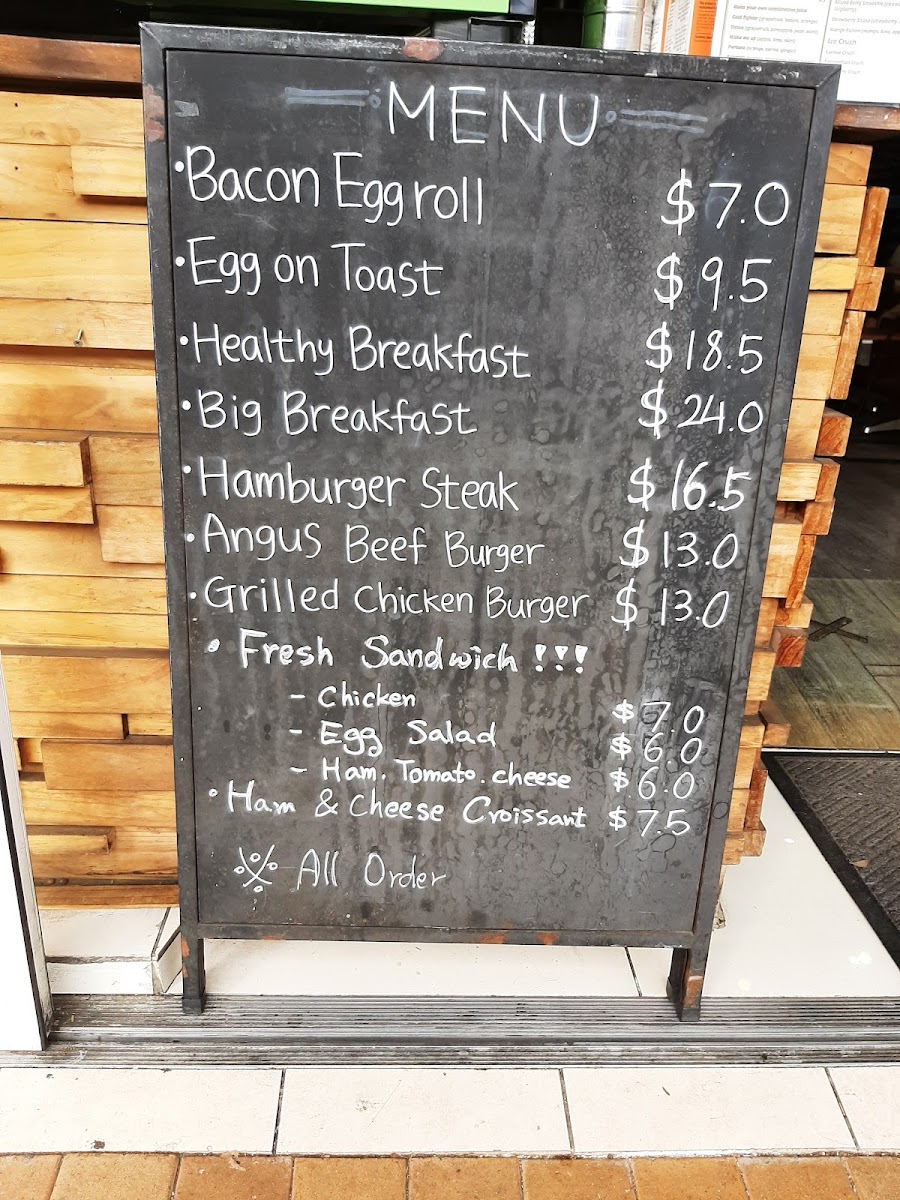 MENU
• Bacon Egg roll $7.0
• Egg on Toast $9.5
• Healthy Breakfast $18.5
• Big Breakfast $24.0
• Hamburger Steak $16.5
• Angus Beef Burger $13.0
• Grilled Chicken Burger $13.0
• Fresh Sandwich !!!
- Chicken $7.0
- Egg Salad $6.0
- Ham. Tomato. cheese $6.0
• Ham & Cheese Croissant $7.5
※ All Order
Ice Crush